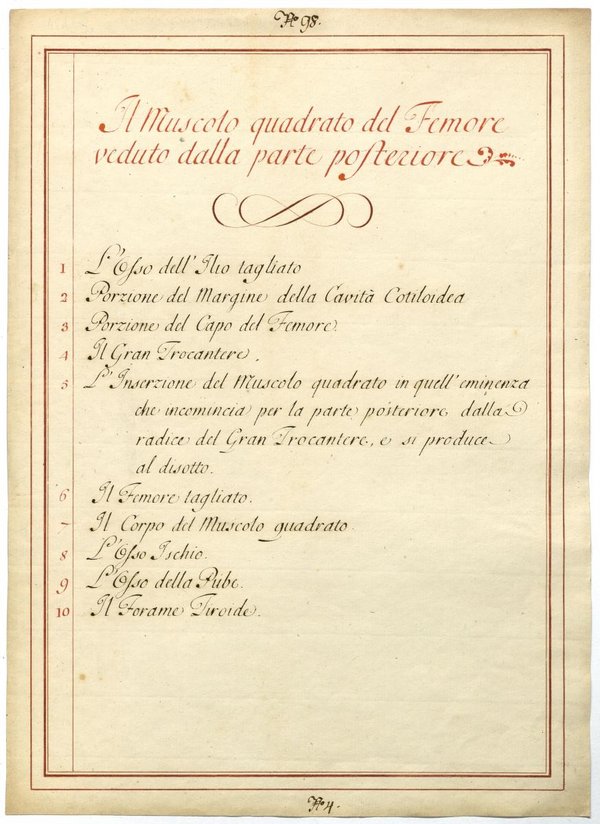 No 98.
Il Muscolo quadrato del Femore
veduto dalla parte posteriore
1 L'Osso dell'Ilio tagliato
2 Porzione del Margine della Cavità Cotiloidea
3 Porzione del Capo del Femore.
4 Il Gran Trocantere.
5 L'Inserzione del Muscolo quadrato in quell'eminenza
che incomincia per la parte posteriore dalla
radice del Gran Trocantere, e si produce
al disotto.
6 Il Femore tagliato.
7 Il Corpo del Muscolo quadrato
8 L'Osso Ischio.
9 L'Osso della Pube.
10 Il Forame Tiroide.
No 4.